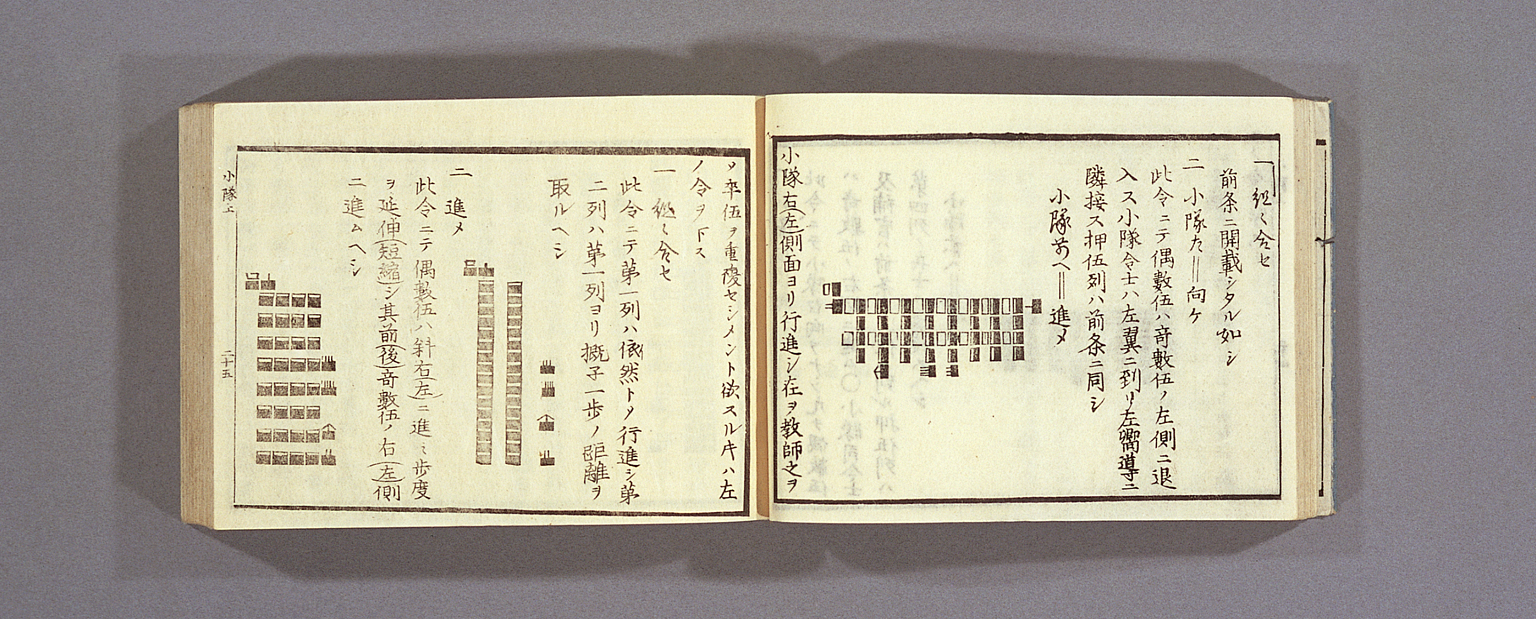 一 組々合セ
前条ニ開載シタル如シ
二 小隊左║向ケ
此令ニテ偶數伍ハ奇數伍ノ左側ニ退
入ス小隊令士ハ左翼ニ到リ左嚮導ニ
隣接ス押伍列ハ前条ニ同シ
小隊前ヘ║進メ
小隊右(左)側面ヨリ行進シ在ヲ教師之ヲ
ノ令ヲ下ス
一 組々合セ
此令ニテ第一列ハ依然トノ行進シ第
二列ハ第一列ヨリ概子一歩ノ距離ヲ
取ルヘシ
二 進メ
此令ニテ偶數伍ハ斜右(左)ニ進ミ歩度
ヲ延伸(短縮)シ其前(後)奇數伍ノ右(左)側
ニ進ムヘシ
小隊
二十五